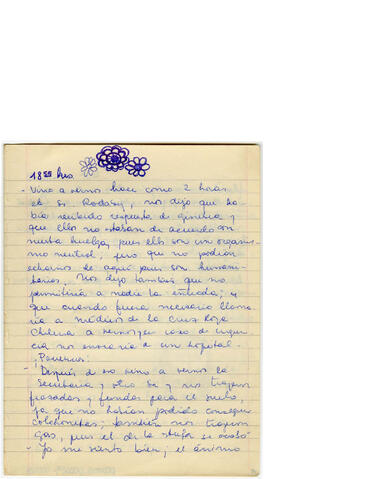 18 55 hrs
- Vino a vernos hace como 2 horas
el sr. Rodasy, nos dijo que ha-
bía recibido respuesta de ginebra y
que ellos no estaban de acuerdo con
nuestra huelga, pues ellos son un organis-
mo neutral; pero que no podían
echarnos de aquí pues son humani-
tarios. Nos dijo también que no
permitiría a nadie la entrada; y
que cuando fuera necesario llama-
ría a médicos de la Cruz Roja
Chilena a vernos, en caso de urgen-
cia nos enviaría a un hospital.
¡Ponernos!
- Después de eso vino a vernos la
Secretaria y otro Sr y nos trajeron
frazadas y fundas para el suelo,
ya que no habían podido conseguir
colchonetas; también nos trajeron
gas, pues el de la stufa se acabó
- Yo me siento bien; el ánimo